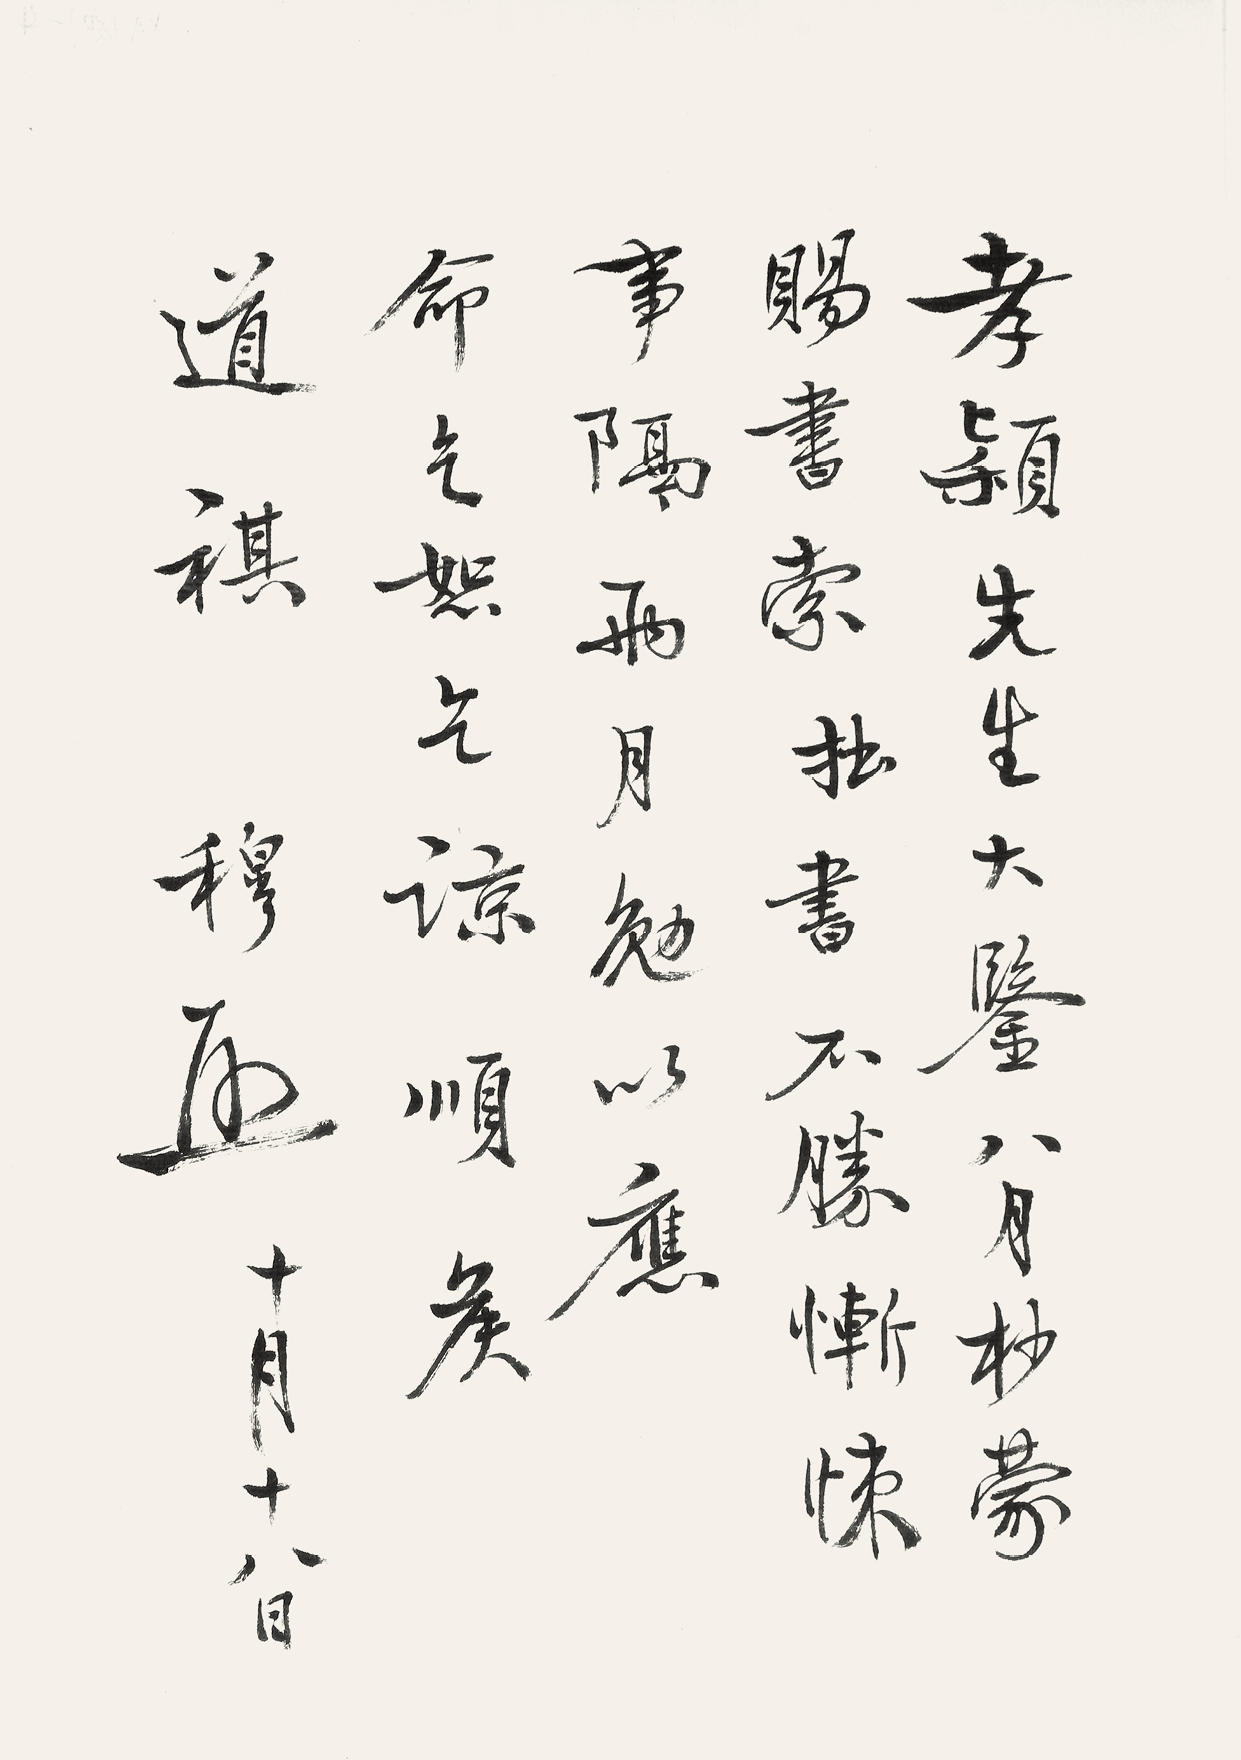 孝穎先生大鑒八月杪蒙
賜書索拙書不勝慚悚
事隔兩月勉以應
命乞恕乞諒順矦
道祺 穆
十月十八日